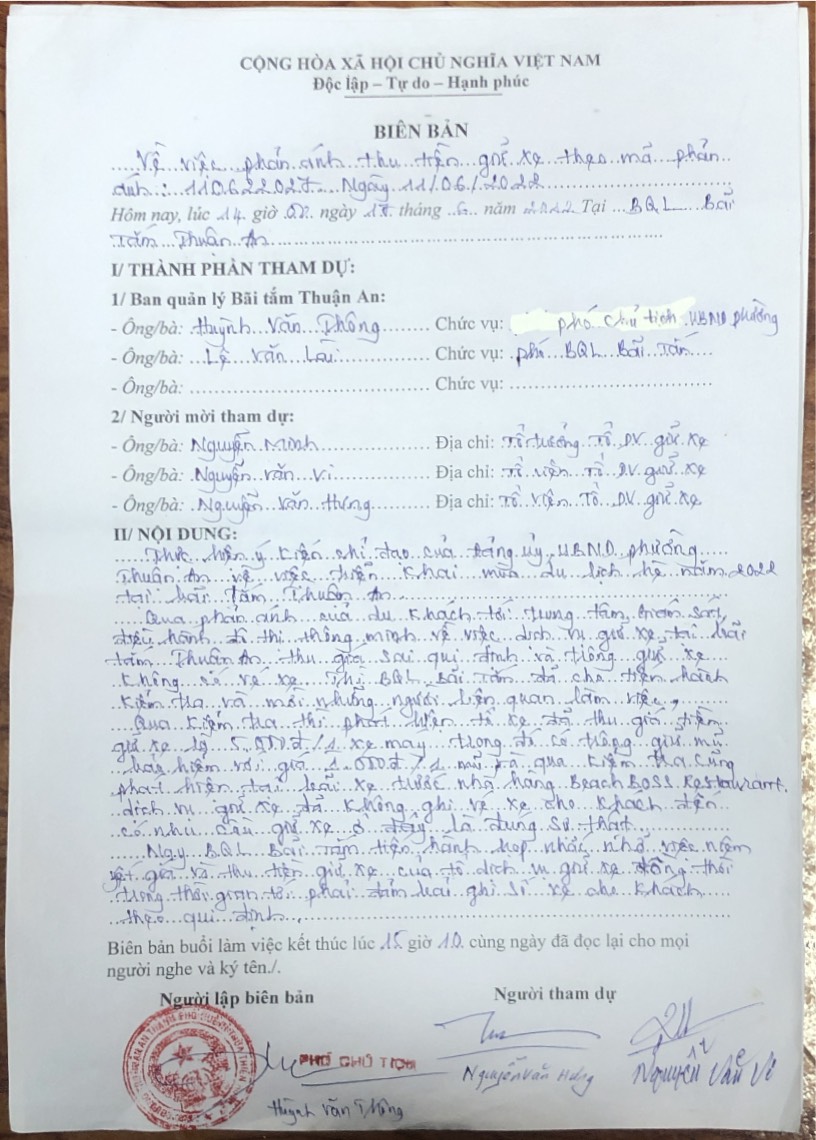 CỘNG HÒA XÃ HỘI CHỦ NGHĨA VIỆT NAM
Độc lập – Tự do – Hạnh phúc
BIÊN BẢN
Về việc phản ánh thu tiền giữ xe theo mã phản
ánh: Ngày 11/06/2022
Hôm nay, lúc 14 giờ ngày tháng 6 năm Tại BQL Bãi
Tắm Thuận An
I/ THÀNH PHẦN THAM DỰ:
1/ Ban quản lý Bãi tắm Thuận An:
- Ông/bà: Huỳnh Văn Thông Chức vụ: phó chủ tịch UBND phường
- Ông/bà: Lê Văn Lài Chức vụ: phó BQL Bãi Tắm
- Ông/bà: Chức vụ:
2/ Người mời tham dự:
- Ông/bà: Nguyễn Minh Địa chỉ: Tổ trưởng Tổ DV giữ xe
- Ông/bà: Nguyễn Văn Vi Địa chỉ: Tổ viên Tổ DV giữ xe
- Ông/bà: Nguyễn Văn Hưng Địa chỉ: Tổ viên Tổ DV giữ xe
II/ NỘI DUNG:
Thực hiện ý kiến chỉ đạo của Đảng ủy, UBND phường
Thuận An về việc triển khai mùa du lịch hè năm 2022
tại bãi tắm Thuận An
Qua phản ánh của du khách tới trung tâm giám sát,
điều hành đô thị thông minh về việc dịch vụ giữ xe tại bãi
tắm Thuận An thu giá sai qui định và trông giữ xe
không có vé xe. Thì BQL Bãi Tắm đã cho tiến hành
kiểm tra và mời những người liên quan làm việc,
Qua kiểm tra thì phát hiện tổ xe đã thu giá tiền
giữ xe là 5.000đ/1 xe máy trong đó có trông giữ mũ
bảo hiểm với giá 1.000đ/1 mũ và qua kiểm tra cũng
phát hiện tại bãi xe trước nhà hàng Beach Boss Restaurant.
dịch vụ giữ xe đã không ghi vé xe cho khách đến
có nhu cầu giữ xe ở đây là đúng sự thật.
Nay BQL Bãi Tắm tiến hành họp nhắc nhở việc niêm
yết giá và thu tiền giữ xe của tổ dịch vụ giữ xe đồng thời
trong thời gian tới phải đảm bảo ghi số xe cho khách
theo qui định.
Biên bản buổi làm việc kết thúc lúc 15 giờ 10 cùng ngày đã đọc lại cho mọi
người nghe và ký tên./.
Người lập biên bản Người tham dự
PHÓ CHỦ TỊCH
Huỳnh Văn Thông Nguyễn Văn Hưng Nguyễn Văn Vi